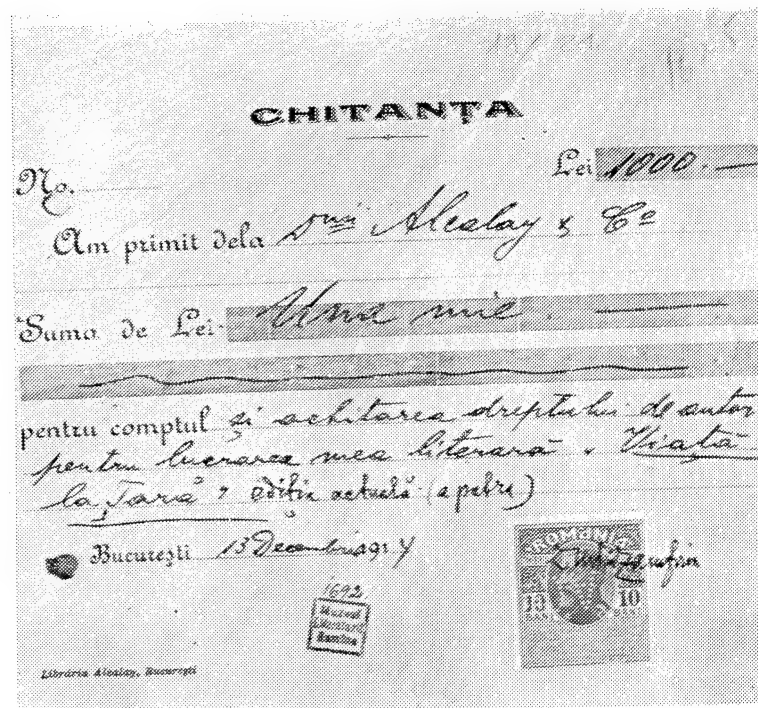 CHITANȚA
No.
Lei 1000.—
Am primit dela Dnii Alcalay & Co
Suma de Lei Una mie. —
pentru comptul și achitarea dreptului de autor
pentru lucrarea mea literară „Viața
la Țară" ediția actuală (a patra)
București 13 Decembrie 1914
ROMANIA
10 10
BANI BANI
1692
Muzeul
Literaturii
Române
Librăria Alcalay, București